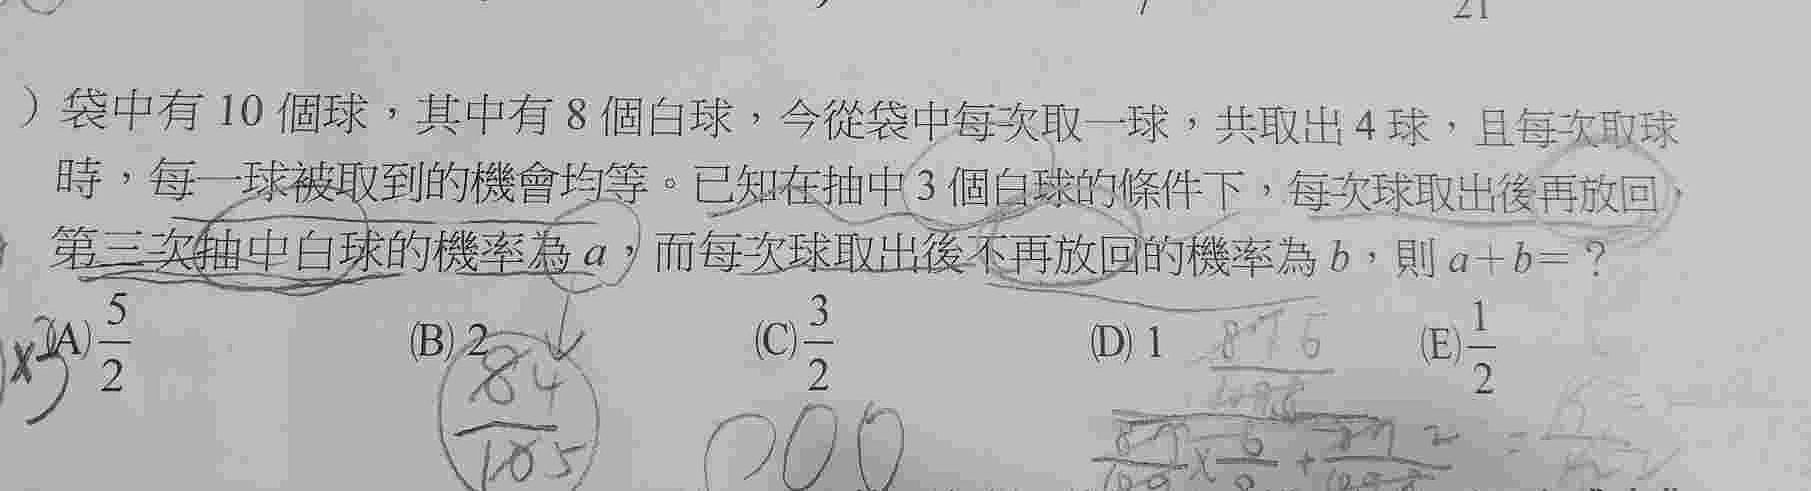 21
）袋中有 10 個球，其中有 8 個白球，今從袋中每次取一球，共取出 4 球，且每次取球
時，每一球被取到的機會均等。已知在抽中 3 個白球的條件下，每次球取出後再放回，
第三次抽中白球的機率為 a，而每次球取出後不再放回的機率為 b，則 a+b=？
(A) 5/2 (B) 2 (C) 3/2 (D) 1 (E) 1/2
84
105